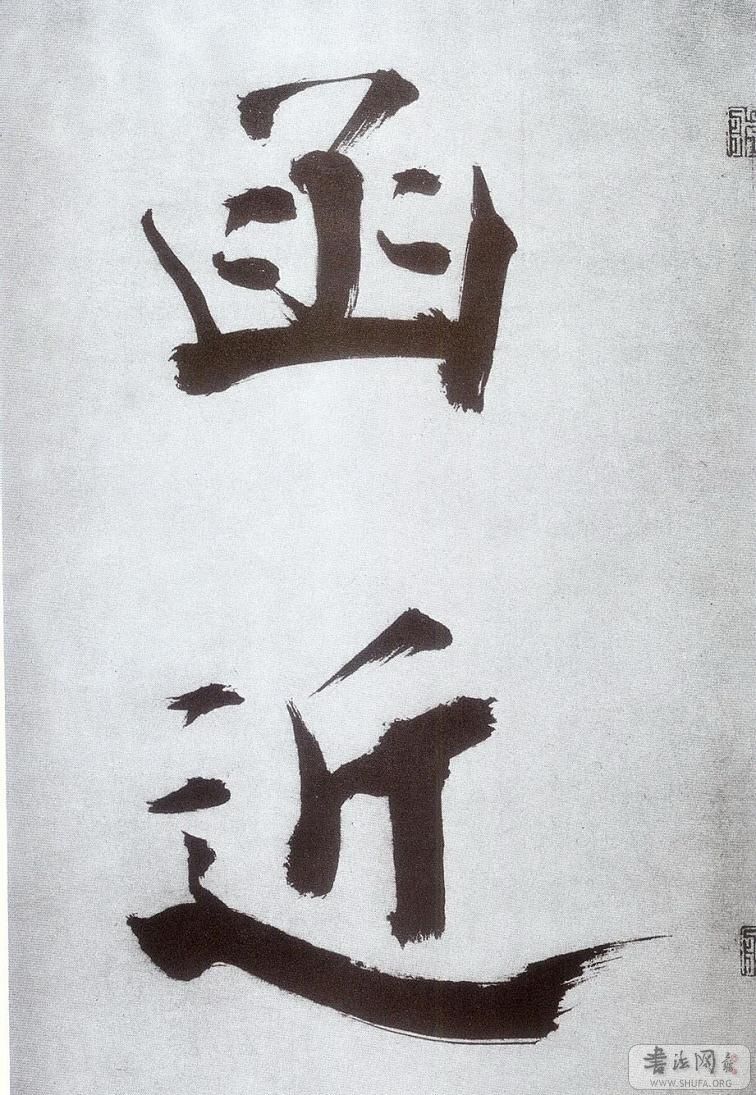 函
近
書法网
WWW.SHUFA.ORG